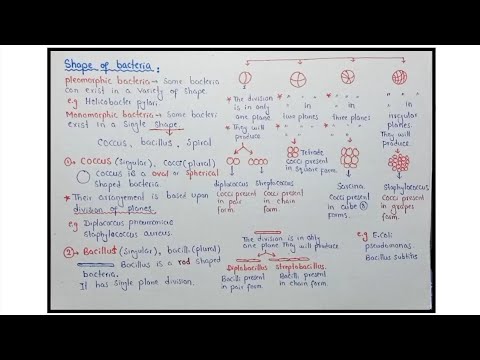 Shape of bacteria:
pleomorphic bacteria → Some bacteria
can exist in a variety of shape.
e.g Helicobacter pylori.
Monomorphic bacteria → Some bacteri
exist in a single shape.
Coccus, bacillus, Spiral
1). Coccus (singular), Cocci (plural)
coccus is a oval or spherical
shaped bacteria.
* Their arrangement is based upon
division of planes.
e.g Diplococcus pneumonicus
Staphylococcus aureus.
2) Bacillus (singular), bacilli (plural)
Bacillus is a rod shaped
bacteria.
It has single plane division.
* The division
is in only
one plane
* They will
produce
diplococcus
Cocci present
in pair
form.
Streptococcus
Cocci present
in chain
form.
* " "
" in
two planes
* " "
"
Tetrate
cocci present
in square form.
* " "
" in
three planes
* " "
"
Sarcina
Cocci present
in cube 8
forms.
" "
" in
irregular
planes.
They will
produce.
Staphylococcus
Cocci present
in grapes
form.
The division is in only
one plane They will produce
Diplobacillus
Bacilli present
in pair form.
Streptobacillus.
Bacilli present
in chain form.
e.g E.Coli
pseudomonas
Bacillus subtilis